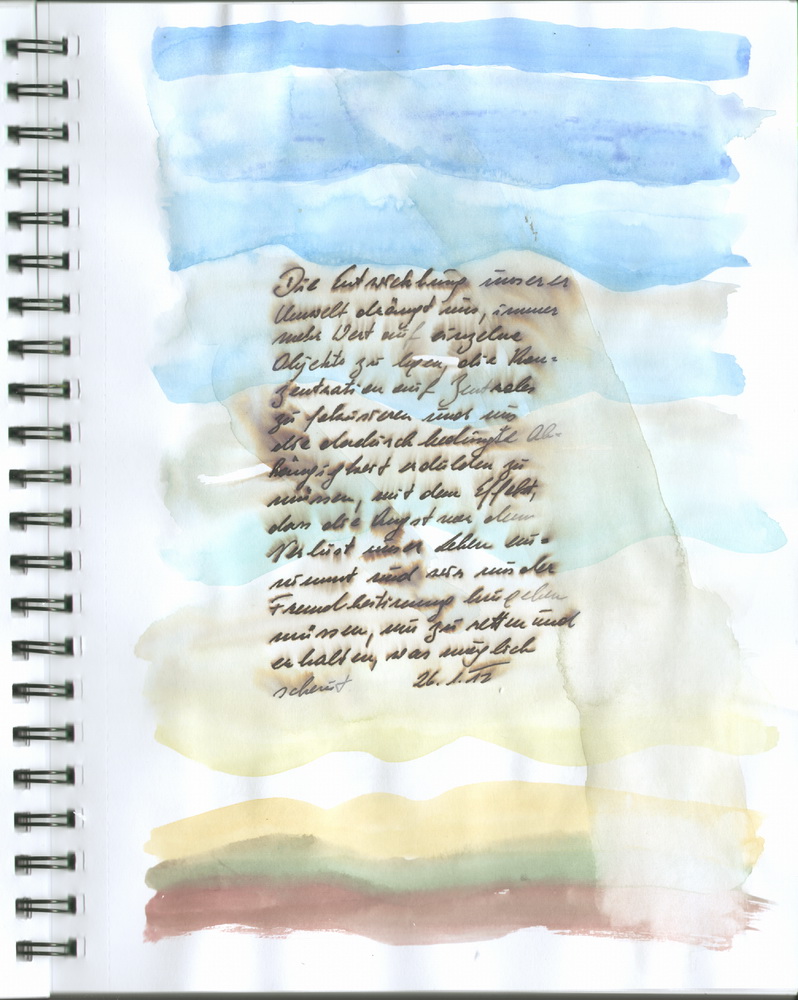 Die Entwicklung unserer
Umwelt drängt uns, immer
mehr Wert auf einzelne
Objekte zu legen, die Kon-
zentration auf Zentrales
zu fokusieren und uns
die dadurch bedingte Ab-
hängigkeit erdulden zu
müssen, mit dem Effekt,
dass die Angst vor dem
Verlust unser Leben ein-
nimmt und wir uns der
Fremdbestimmung hingeben
müssen, um zu retten und
erhalten, was möglich
scheint 26.1.12